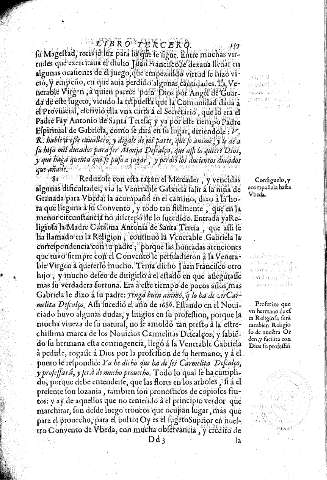 LIBRO TERCERO. 157
su Magestad, recibí luz para lo que se sigue. Entre muchas vir-
tudes que exercitaua el dicho Juan Francisco, se dexaua lleuar en
algunas ocasiones del juego, que empeçando virtud se hizo vi-
cio, y empeño, en que auia perdido algunas cantidades. La Ve-
nerable Virgen, à quien parece puso Dios por Angel de Guar-
da de este sugeto, viendo la respuesta que la Comunidad daua à
el Prouincial, escriuió otra vez carta al Secretario, que lo era el
Padre Fay Antonio de Santa Teresa; y ya por este tiempo Padre
Espiritual de Gabriela, como se dirá en su lugar, diziendole: V.
R. hable à esse cauallero, y digale de mi parte, que se anime, y le dè à
su hija mil ducados para ser Monja Descalça, que assi lo quiere Dios,
y que haga quenta que se puso à jugar, y perdió los ducientos ducados
que añade.
81 Reduxose con esta razon el Mercader, y vencidas
algunas dificultades, viò la Venerable Gabriela salir à la niña de
Granada para Vbeda: la acompañò en el camino, dixo à la ho-
ra que llegaria à su Convento, y todo tan fielmente, que en la
menor circunstancia no discrepò de lo sucedido. Entrada ya Re-
ligiosa la Madre Catalina Antonia de Santa Teresa, que assi se
ha llamado en la Religion, continuò la Venerable Gabriela la
correspondencia con su padre; porque las honradas atenciones
que tuvo siempre con el Convento le persuadieron à la Venera-
ble Virgen à quererlo mucho. Tenia dicho Juan Francisco otro
hijo, y mucho deseo de dirigirle à el estado en que assegurasse
mas su verdadera fortuna. Era à este tiempo de pocos años, mas
Gabriela le dixo à su padre: Tenga buen animo, q̃ lo ha de ver Car-
melita Descalço. Assi sucediò el año de 1686. Estando en el Noui-
ciado huvo algunas dudas, y litigios en su profession, porque
la mucha viveza de su natural, no se amoldò tan presto à la estre-
chissima marca de los Nouicios Carmelitas Descalços; y sabiẽ-
do su hermana esta contingencia, llegò à la Venerable Gabriela
à pedirle, rogasse à Dios por la profession de su hermano, y à el
punto le respondiò: Yà he dicho que ha de ser Carmelita Descalço,
y professarà, y serà de mucho prouecho. Todo lo qual se ha cumpli-
do, porque debe entenderse, que las flores en los arboles, si à el
presente son loçania, tambien son pronosticos de copiosos fru-
tos: y ay de aquellos que no teniendo à el principio verdor que
marchitar, son desde luego troncos que ocupan lugar, mas que
para el prouecho, para el bulto. Oy es sugeto Superior en nuestro
Convento de Vbeda, con mucha observancia, y credito de
Dd3 la
Consiguelo, y
acompañala hasta
Vbeda.
Predixo que
vn hermano suyo
en Religion, serà
tambien Religio-
so de nuestra Or-
den, y facilita con
Dios su professiõ.